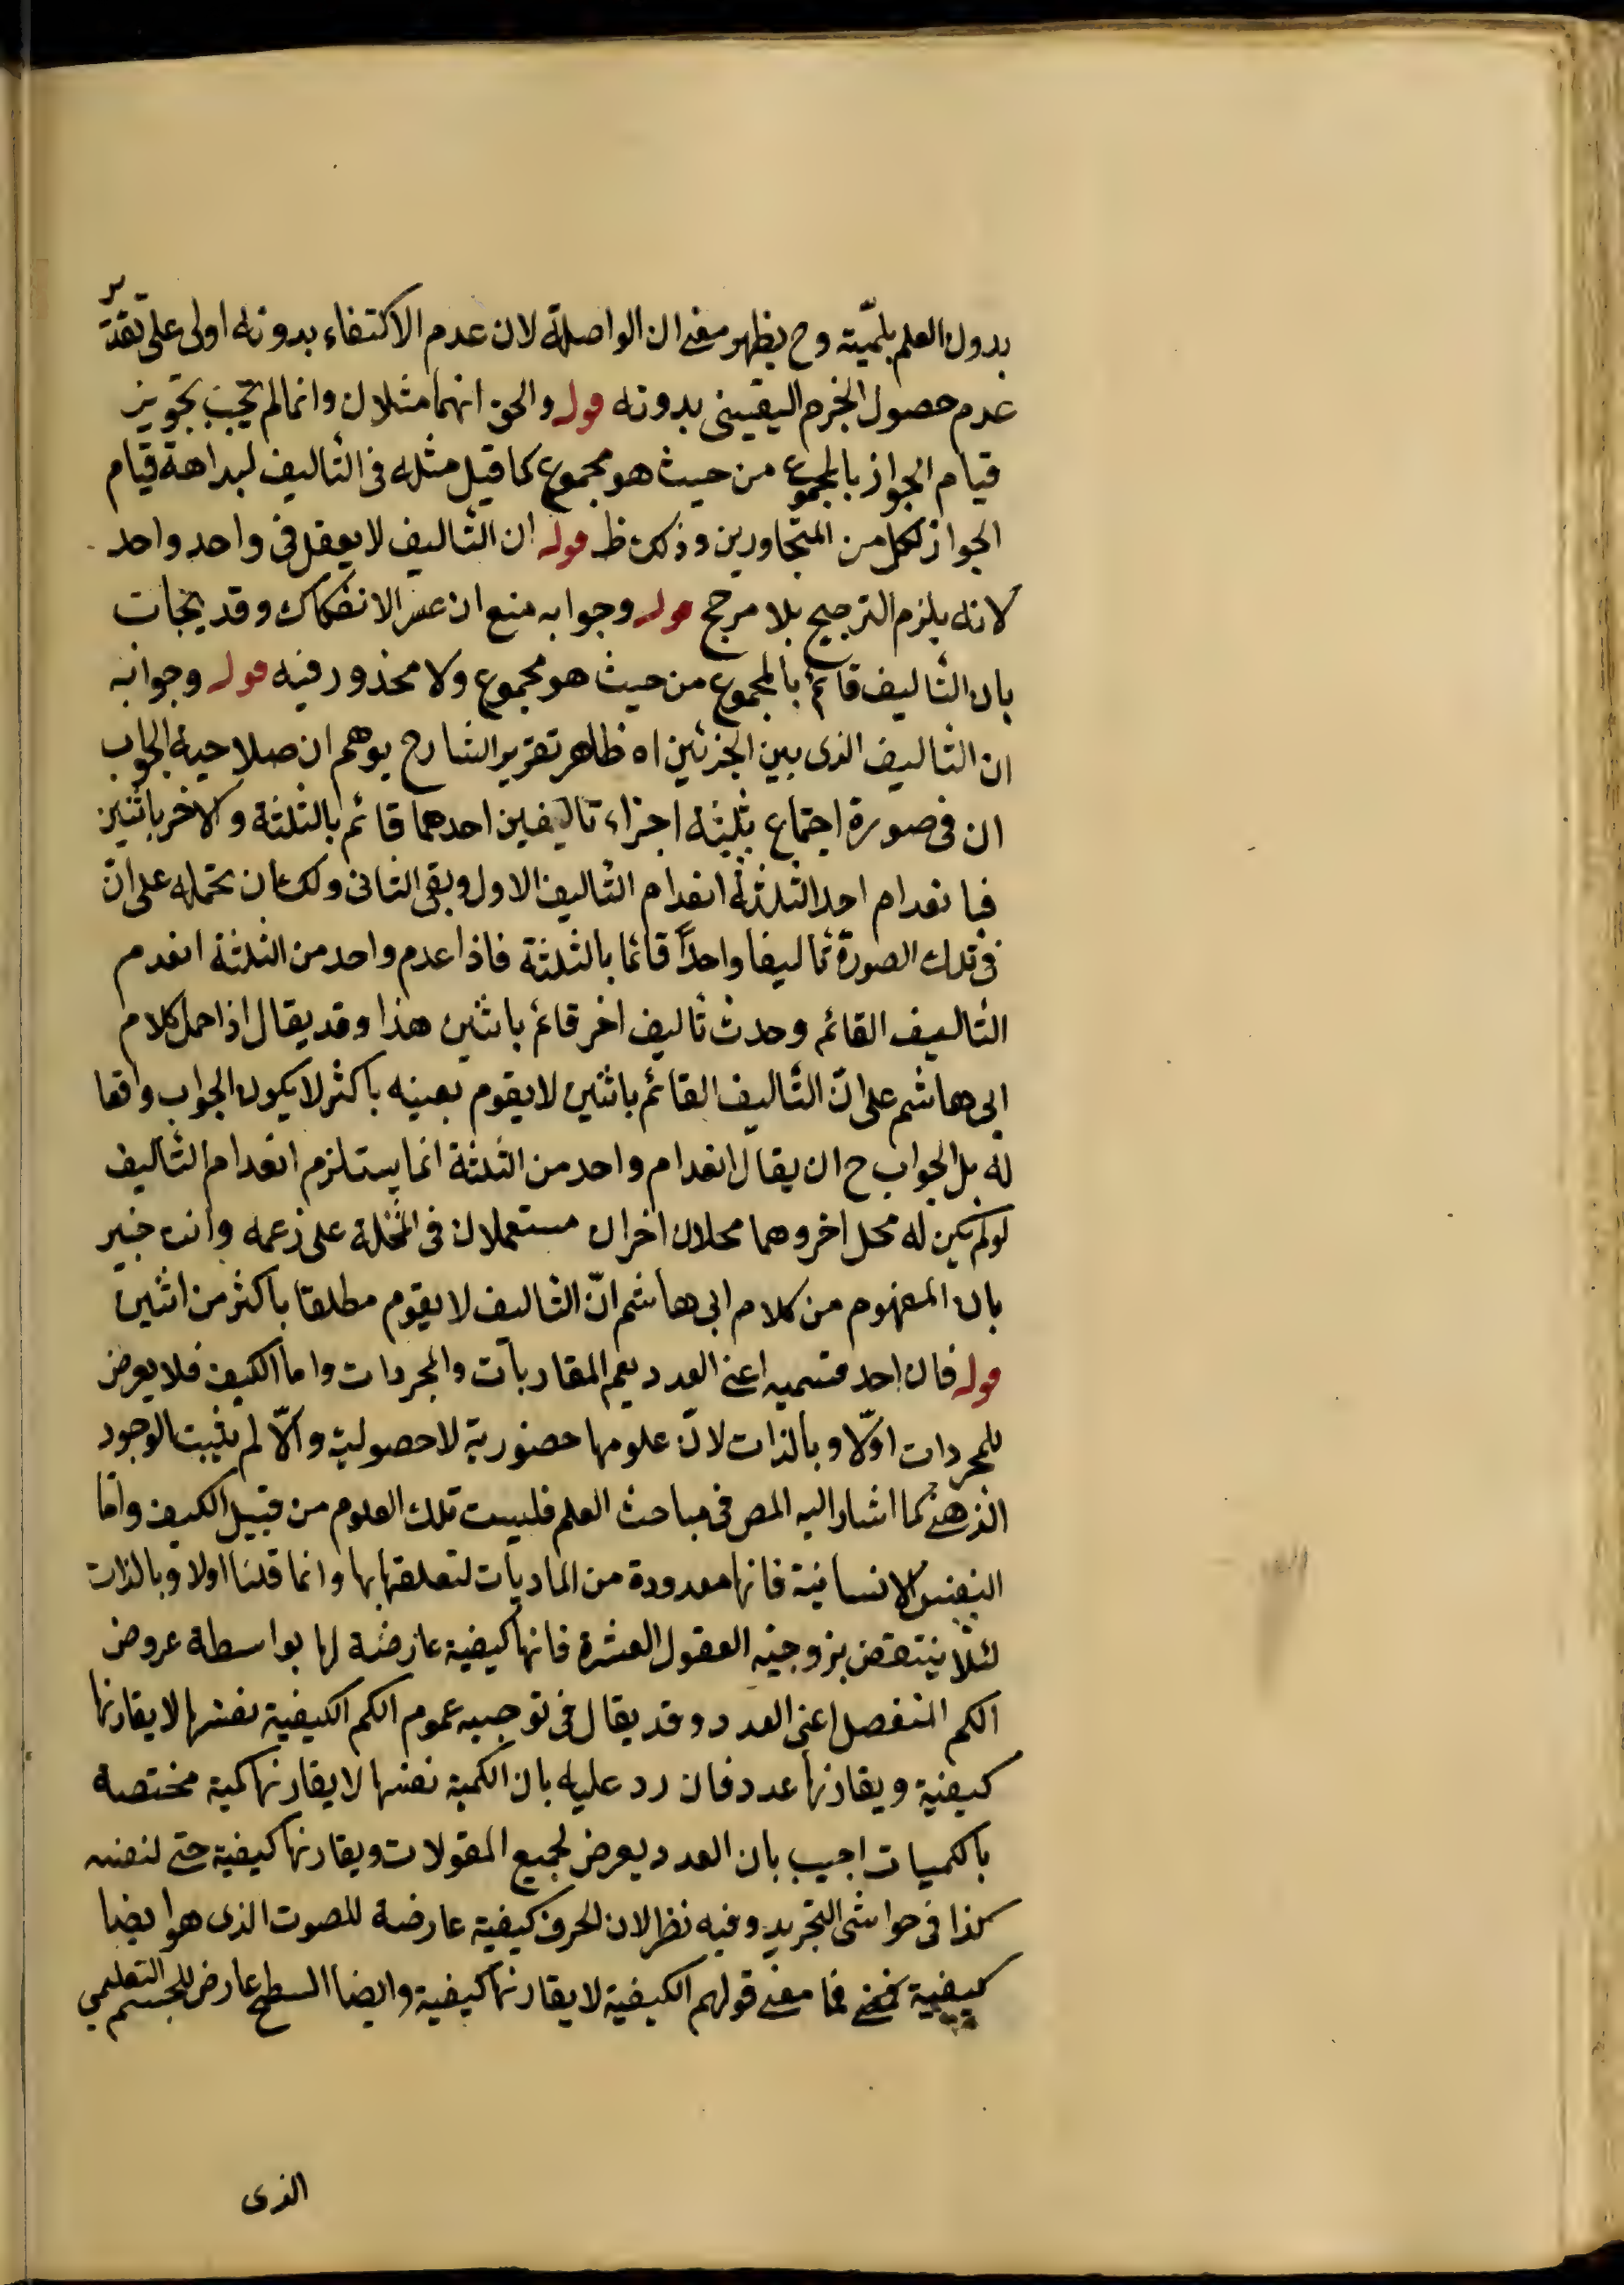 بدون العلم بلمّيته وح يظهر معنى ان الواصلة لان عدم الاكتفاء بدونه اولى على تقدير
عدم حصول الجزم اليقينى بدونه قوله والحق انهما مثلان وانما لم يجب بتجويز
قيام الجواز بالمجموع من حيث هو مجموع كما قيل مثله فى التأليف لبداهة قيام
الجواز لكل من المتجاورين وذلك ظ قوله ان التأليف لا يعقل فى واحد واحد
لانه يلزم الترجيح بلا مرجح قوله وجوابه منع ان عسر الانفكاك وقد يجاب
بان التأليف قائم بالمجموع من حيث هو مجموع ولا محذور فيه قوله وجوابه
ان التأليف الذى بين الجزئين اه ظاهر تقرير الشارح يوهم ان صلاحية الجواب
ان فى صورة اجتماع ثلثة اجزاء تاليفين احدهما قائم بالثلثة والاخر باثنين
فبانعدام احد الثلثة انعدام التأليف الاول وبقى الثانى ولك ان تحمله على انّ
فى تلك الصورة تأليفا واحدًا قائما بالثلثة فاذا عدم واحد من الثلثة انعدم
التأليف القائم وحدث تأليف اخر قائم باثنين هذا وقد يقال اذا حمل كلام
ابى هاشم على انّ التأليف القائم باثنين لا يقوم بعينه باكثر لا يكون الجواب واقعا
له بل الجواب ح ان يقال انعدام واحد من الثلثة انما يستلزم انعدام التأليف
لو لم يكن له محل اخر وهما محلان اخران مستعملان فى المثلة على زعمه وانت خبير
بان المفهوم من كلام ابى هاشم انّ التأليف لا يقوم مطلقا باكثر من اثنين
قوله فان احد قسميه اعنى العدد يعم المقاربات والمجردات واما الكيف فلا يعرض
للمجردات اوّلا وبالذات لانّ علومها حضورية لا حصولية والّا لم يثبت الوجود
الذهنى كما اشار اليه المص فى مباحث العلم فليست تلك العلوم من قبيل الكيف وامّا
النفس الانسانية فانها معدودة من الماديات لتعلقها بها وانما قلنا اولا وبالذات
لئلا ينتقض بزوجية العقول العشرة فانها كيفية عارضة لها بواسطة عروض
الكم المنفصل اعنى العدد وقد يقال فى توجيه عموم الكم الكيفية نفسها لا يقارنها
كيفية ويقارنها عدد فان رد عليه بان الكمية نفسها لا يقارنها كمية مختصة
بالكميات اجيب بان العدد يعرض لجميع المقولات ويقارنها كيفية حتى لنفسه
كذا فى حواشى التجريد وفيه نظر لان الحرف كيفية عارضة للصوت الذى هو ايضا
كيفية فما معنى قولهم الكيفية لا يقارنها كيفية وايضا السطح عارض للجسم التعليمي
الذى